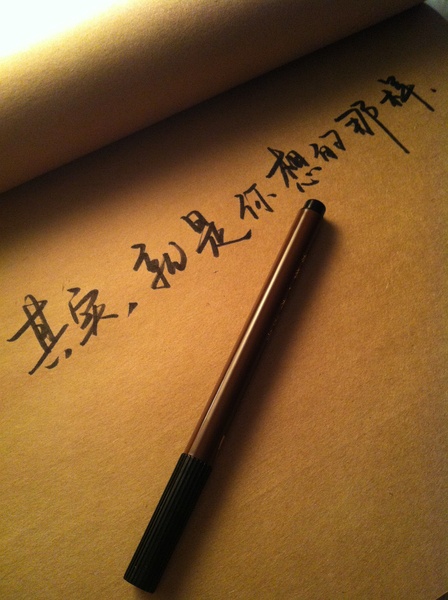 其实，就是你想的那样．